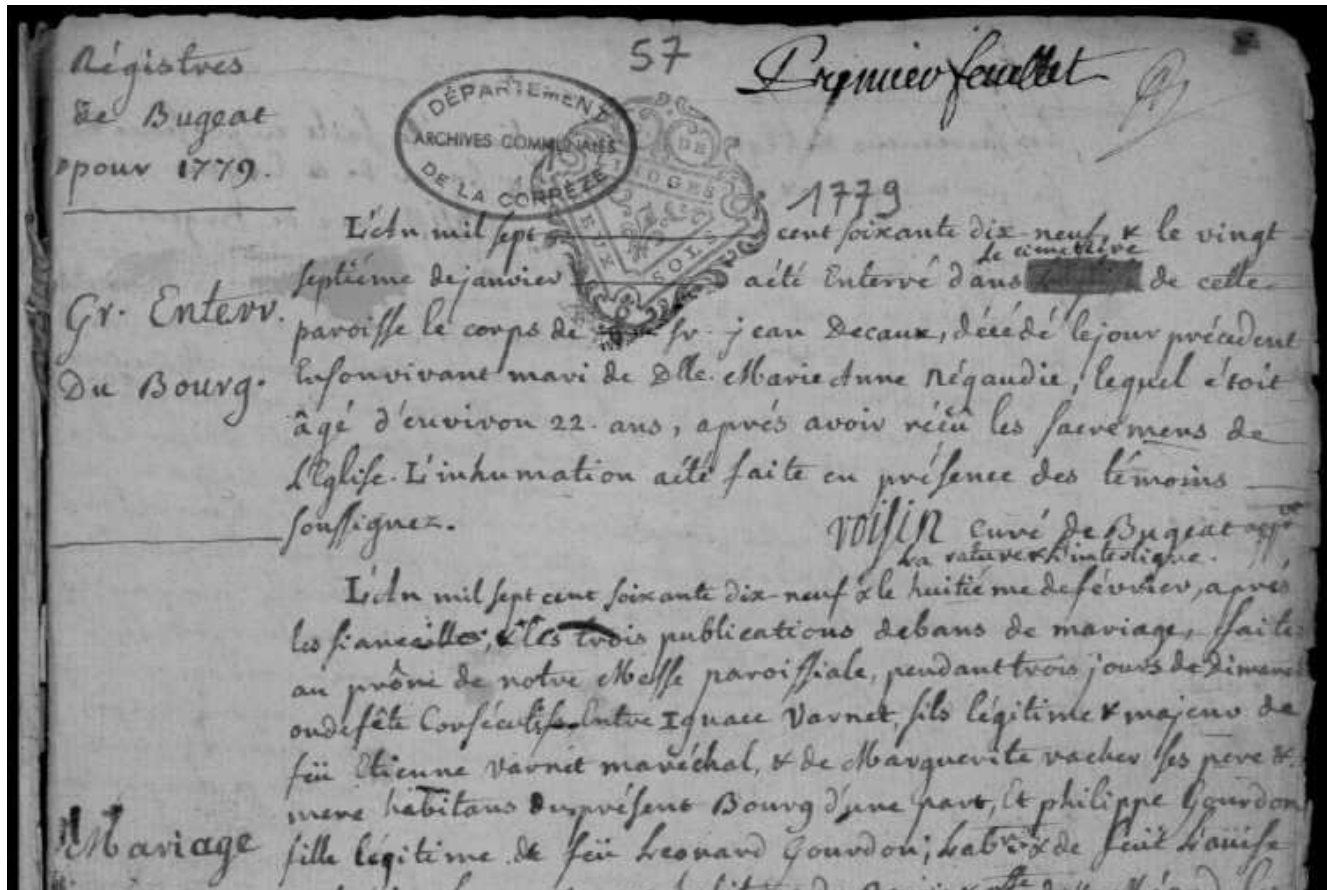 57
Premier feuillet
Régistres
de Bugeat
pour 1779.
DÉPARTEMENT
ARCHIVES COMMUNALES
DE LA CORRÈZE
DEUX SOLS
1779
L'An mil sept cent soixante dix-neuf, & le vingt
le cimetiere
septiéme de janvier a été Enterré dans de cette
Gr. Enterr.
paroisse le corps de sr. jean Decaux, décédé le jour précédent
Du Bourg.
En son vivant mari de Dlle. Marie Anne Négaudie, lequel étoit
âgé d'environ 22 ans, aprés avoir réçû les sacremens de
l'Eglise. L'inhumation a été faite en présence des témoins
soussignez. voisin Curé de Bugeat appr
la rature & l'interligne.
L'An mil sept cent soixante dix-neuf & le huitiéme de février, aprés
les fiancailles, & les trois publications de bans de mariage, faites
au prône de notre Messe paroissiale, pendant trois jours de Dimanc
ou de fête Consécutifs, Entre Ignace Varnet, fils légitime & majeur de
feü Etienne Varnet maréchal, & de Marguerite vacher ses pere &
mere habitans du présent Bourg d'une part, Et philippe Gourdon
Mariage
fille légitime de feü Leonard Gourdon, & de